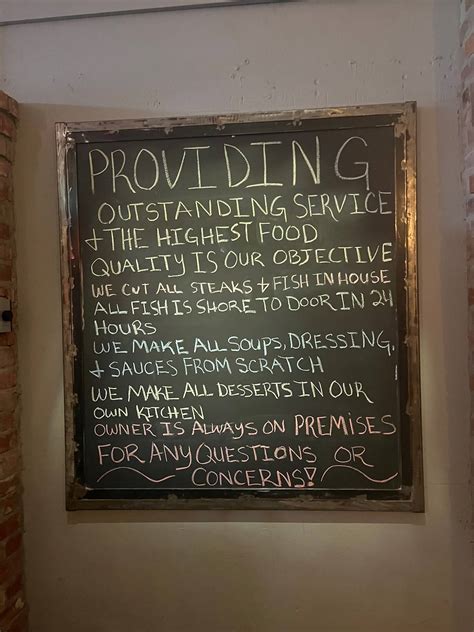 PROVIDING
OUTSTANDING SERVICE
+ THE HIGHEST FOOD
QUALITY IS OUR OBJECTIVE
WE CUT ALL STEAKS + FISH IN HOUSE
ALL FISH IS SHORE TO DOOR IN 24
HOURS
WE MAKE ALL SOUPS, DRESSING,
+ SAUCES FROM SCRATCH
WE MAKE ALL DESSERTS IN OUR
OWN KITCHEN
OWNER IS ALWAYS ON PREMISES
FOR ANY QUESTIONS OR
CONCERNS!